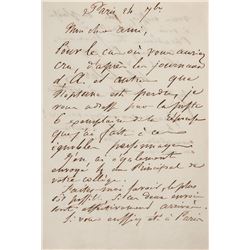 Paris 24 7bre
Mon cher ami,
Pour le cas où vous auriez
cru, d'après les journaux
d'A. et autres que
Neptune est perdu, je
vous adresse par la poste
6 exemplaires de la réponse
que j'ai fait à cet
ignoble personnage
J'en ai également
envoyé au Principal de
votre collège.
Faites moi savoir le plus
tôt possible si ces deux envois
sont effectivement arrivés.
Si vous eussiez été à Paris